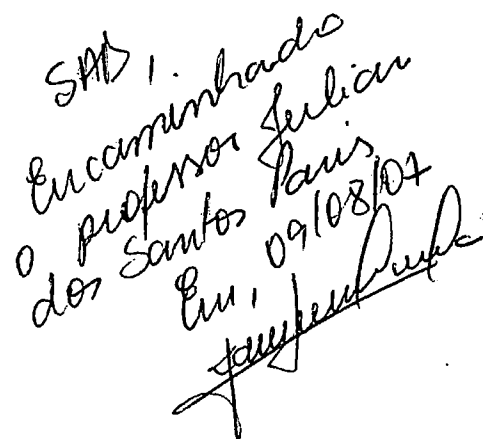 SAD,
Encaminhado
o professor Julian
dos Santos Paris
Em, 09/08/07